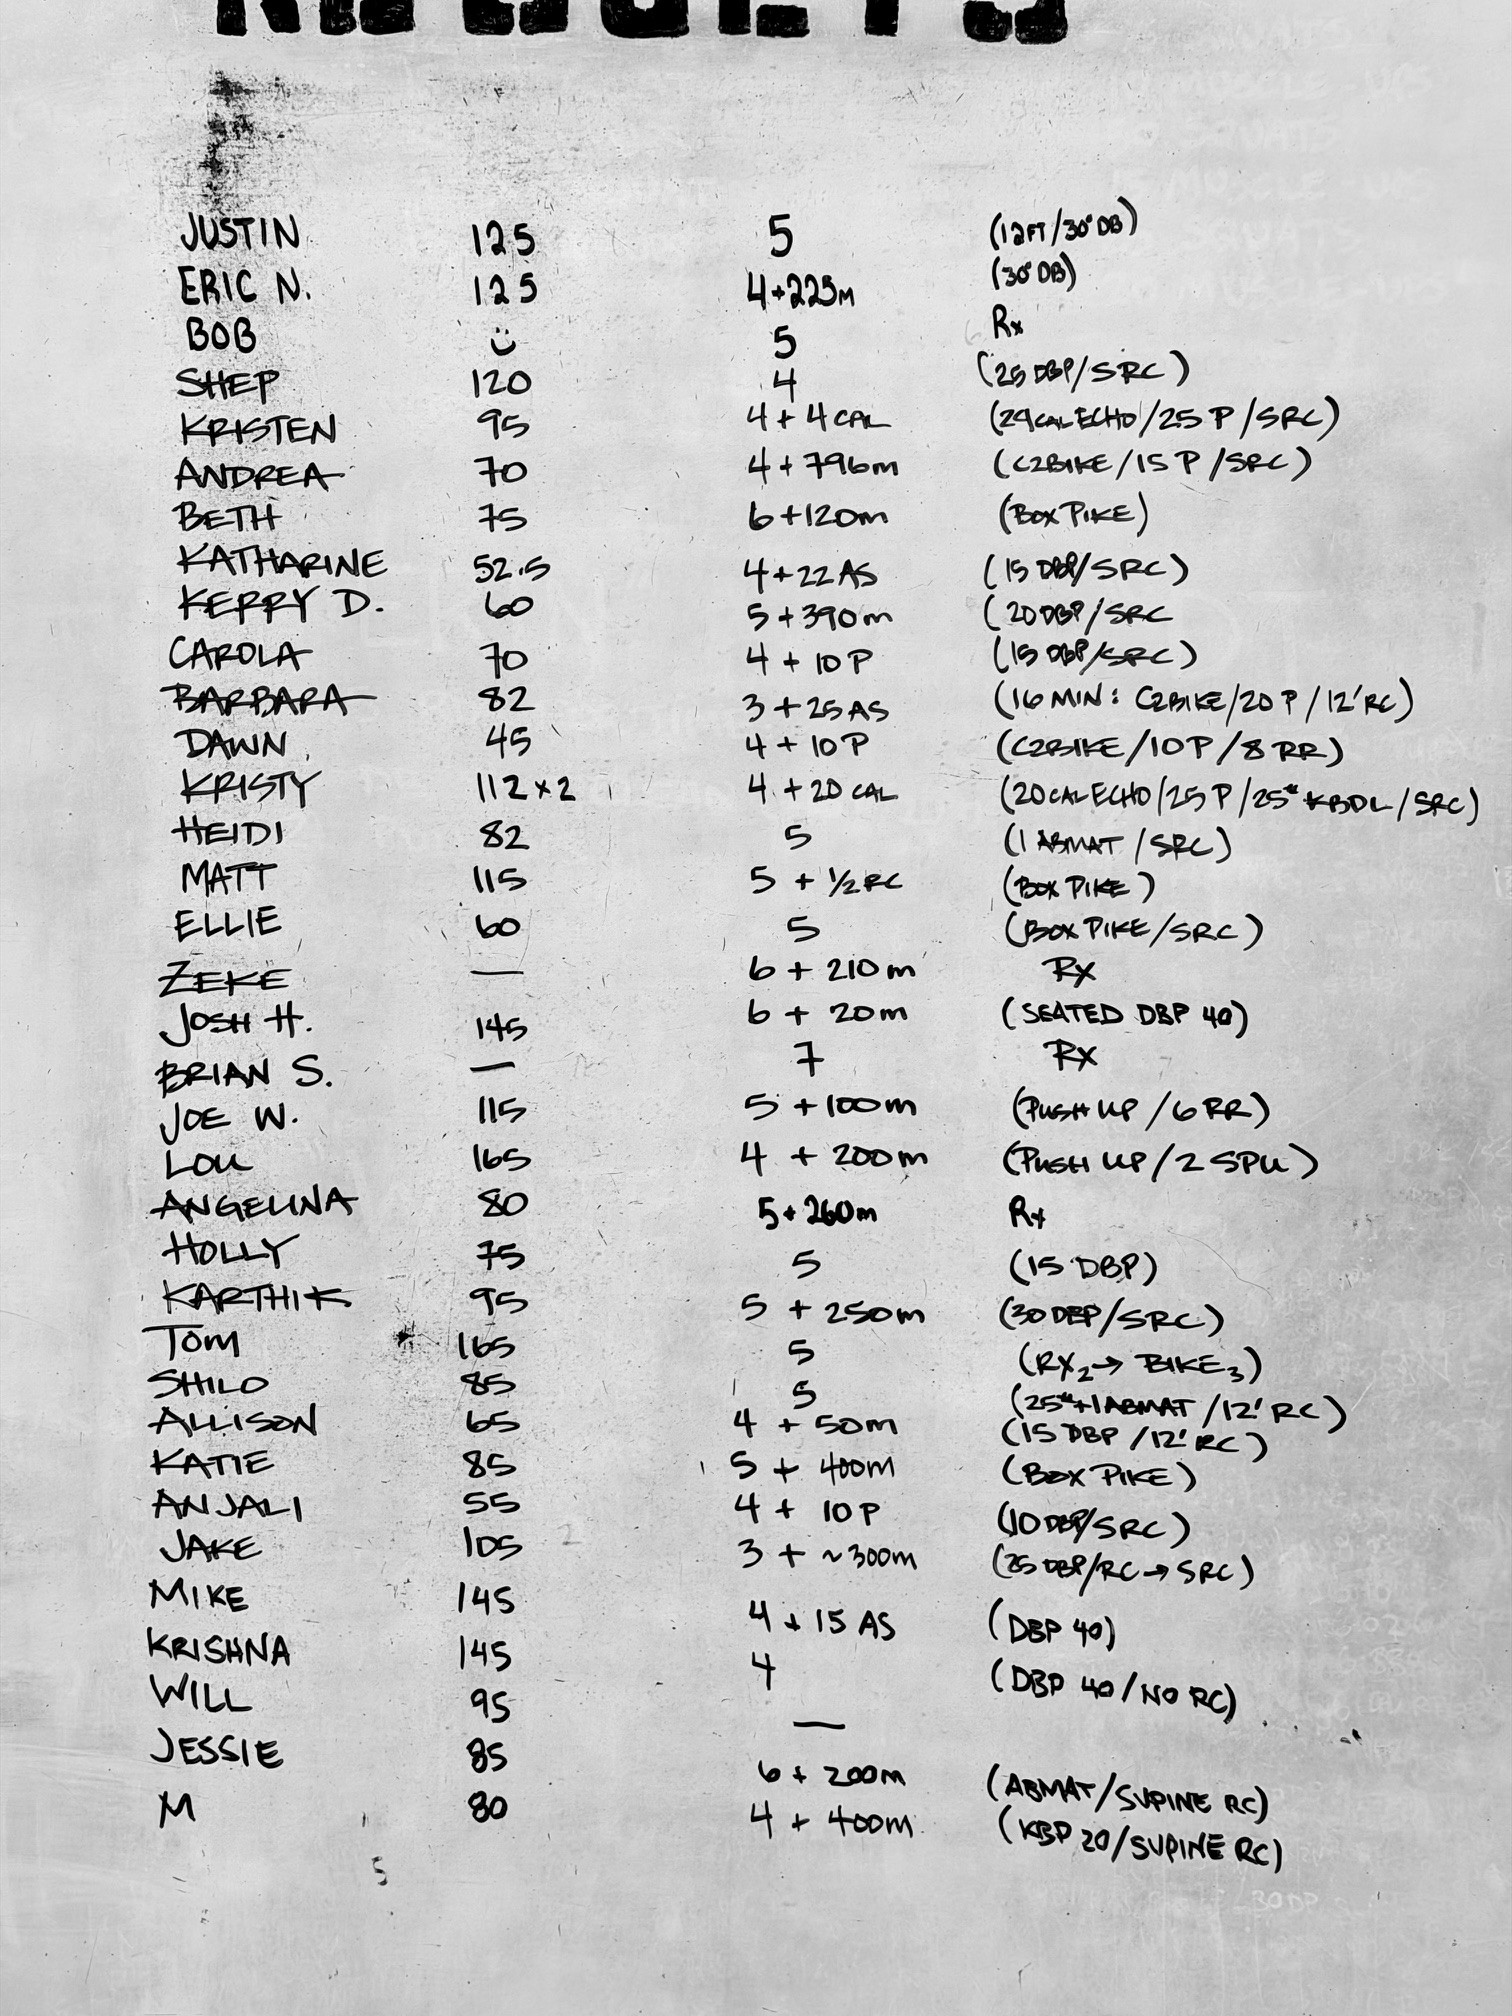 JUSTIN 125 5 (12FT/30# DB)
ERIC N. 125 4+225m (30# DB)
BOB 5 Rx
SHEP 120 4 (25 DBP/SRC)
KRISTEN 95 4+4 CAL (29CAL ECHO/25 P/SRC)
ANDREA 70 4+796m (C2BIKE/15 P/SRC)
BETH 75 6+120m (BOX PIKE)
KATHARINE 52.5 4+22 AS (15 DBP/SRC)
KERRY D. 60 5+390m (20DBP/SRC
CAROLA 70 4+10 P (15 DBP/SRC)
BARBARA 82 3+25 AS (16 MIN: C2BIKE/20 P/12' RC)
DAWN 45 4+10 P (C2BIKE/10 P/8 RR)
KRISTY 112 x 2 4+20 CAL (20CAL ECHO/25 P/25# KBDL/SRC)
HEIDI 82 5 (1 ABMAT/SRC)
MATT 115 5 + 1/2 RC (BOX PIKE)
ELLIE 60 5 (BOX PIKE/SRC)
ZEKE — 6 + 210m RX
JOSH H. 145 6 + 20m (SEATED DBP 40)
BRIAN S. — 7 RX
JOE W. 115 5 + 100m (PUSH UP/6 RR)
LOU 165 4 + 200m (PUSH UP/2 SPU)
ANGELINA 80 5+260m Rx
HOLLY 75 5 (15 DBP)
KARTHIK 95 5 + 250m (30DBP/SRC)
TOM 165 5 (RX2→ BIKE3)
SHILO 85 5 (25#+1ABMAT/12' RC)
ALLISON 65 4 + 50m (15 DBP/12' RC)
KATIE 85 5 + 400m (BOX PIKE)
ANJALI 55 4 + 10 P (10DBP/SRC)
JAKE 105 3 + ~300m (25 DBP/RC→SRC)
MIKE 145 4 + 15 AS (DBP 40)
KRISHNA 145 4 (DBP 40/NO RC)
WILL 95 —
JESSIE 85 6 + 200m (ABMAT/SUPINE RC)
M 80 4 + 400m (KBP 20/SUPINE RC)
5